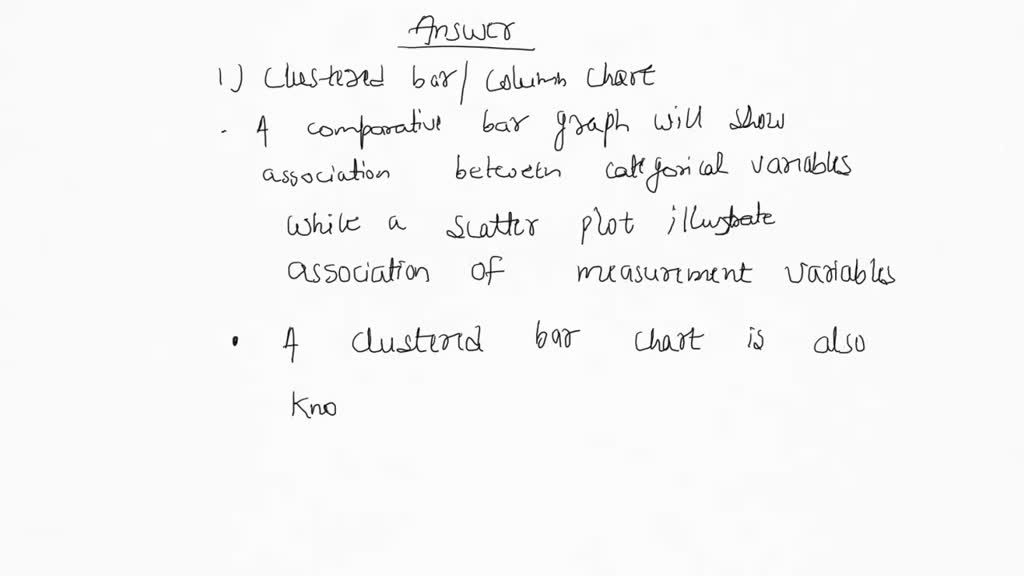 Answer
1) Clustered bar/ column chart
. A comparative bar graph will show
association between categorical variables
while a scatter plot illustrate
association of measurement variables
• A clustered bar chart is also
Kno